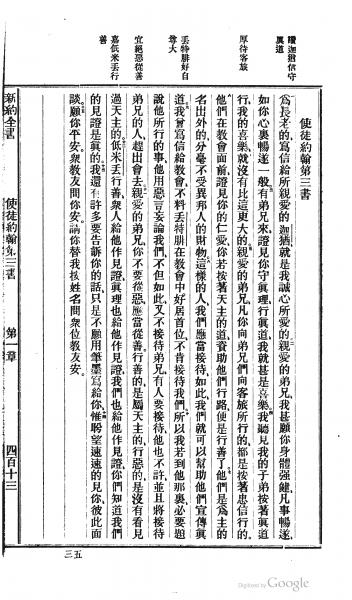 讚迦猶信守
眞道
厚待客旅
丟特腓好自
尊大
宜絕惡從善
嘉低米丟行
善
使徒約翰第三書
爲長老的寫信給所親愛的迦猶就是我誠心所愛的親愛的弟兄我甚願你身體强健凡事暢遂
如你心裏暢遂一般有弟兄來證見你守眞理行眞道我就甚是喜樂我聽見我的子弟按著眞道
行我的喜樂就沒有比這更大的親愛的弟兄凡你向弟兄們向客旅所行的都是按著忠信行的
他們在教會面前證見你的仁愛你若按著天主的道資助他們行路便是行善了他們是爲主的
名出外的分毫不受異邦人的財物這樣的人我們應當接待如此我們就可以幫助他們宣傳眞
道我曾寫信給教會不料丟特腓在教會中好居首位不肯接待我們所以我若到他那裏必要題
說他所行的事他用惡言妄論我們不但如此又不接待弟兄有人要接待他也不許並且將接待
弟兄的人趕出會去親愛的弟兄你不要從惡應當從善行善的是屬天主行惡的是沒有看見
過天主的低米丟行善衆人給他作見證眞理也給他作見證我們也給他作見證你們知道我們
的見證是眞的我還有許多要告訴你的話只是不願用筆墨寫給你惟盼望速速的見你彼此面
談願你平安衆教友問你安請你替我按姓名問衆位教友安
新約全書 使徒約翰第三書 第一章 四百十三
三五
Digitized by Google